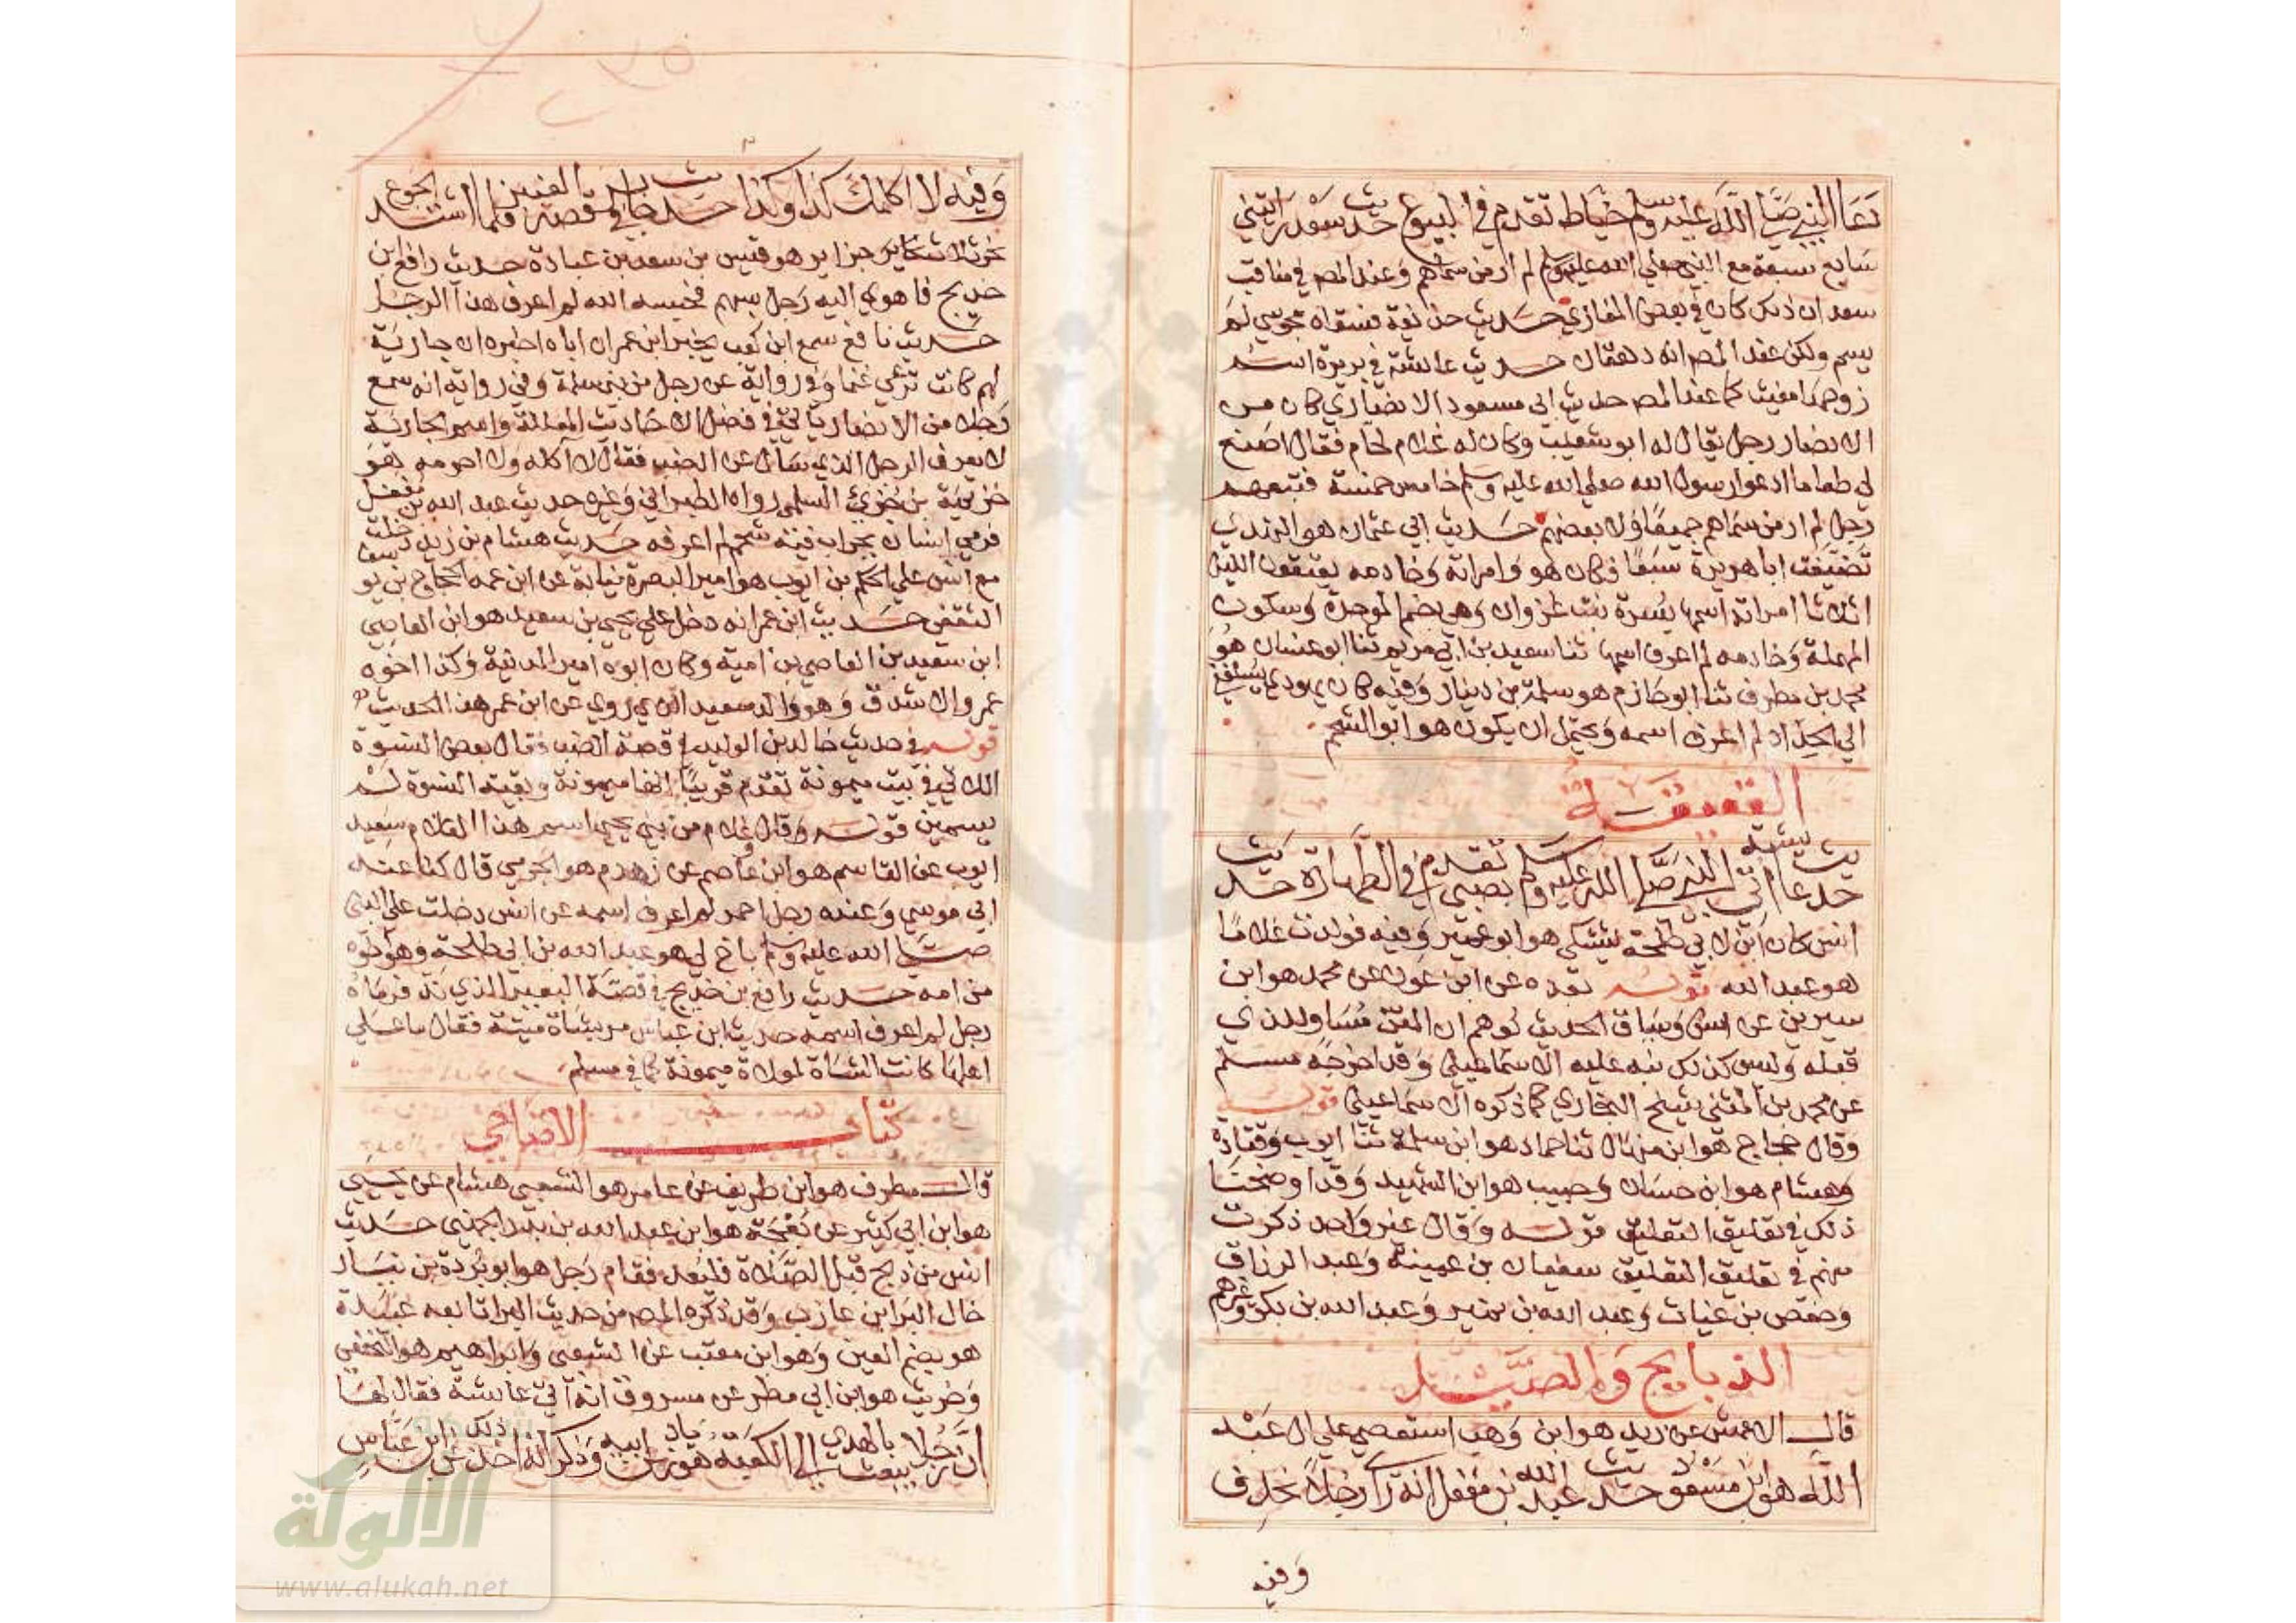 دعا النبي صلى الله عليه وسلم خياط تقدم في البيوع حديث سعد رايتني
سابع سبعة مع النبي صلى الله عليه وسلم لم ار من سماهم وعند المص في مناقب
سعد ان ذلك كان في بعض المغازي حديث حذيفة فسقاه مجوسي لم
يسم ولكن عند المص انه دهقان حديث عائشة في بريرة اسم
زوجها مغيث كما عند المص حديث ابي مسعود الانصاري كان من
الانصار رجل يقال له ابو شعيب وكان له غلام لحام فقال اصنع
لي طعاما ادعو رسول الله صلى الله عليه وسلم خامس خمسة فتبعهم
رجل لم ار من سماهم جميعا ولا بعضهم حديث ابي عثمان هو النهدي
تضيفت ابا هريرة سبعا فكان هو وامراته وخادمه يعتقبون الليل
اثلاثا امراته اسمها بسرة بنت غزوان وهي بضم الموحدة وسكون
المهملة وخادمه لم اعرف اسمها ثنا سعيد بن ابي مريم ثنا ابو غسان هو
محمد بن مطرف ثنا ابو حازم هو سلمة بن دينار وفيه كان يهودي يسلفني
الى الجذاذ لم اعرف اسمه ويحتمل ان يكون هو ابو الشحم
العقيقة
حديث عائشة اتي النبي صلى الله عليه وسلم بصبي تقدم في الطهارة حديث
انس كان ابن لابي طلحة يشتكي هو ابو عمير وفيه فولدت غلاما
هو عبد الله قوله بعده عن ابن عون عن محمد هو ابن
سيرين عن انس وساق الحديث يوهم ان المتن مساو للذي
قبله وليس كذلك نبه عليه الاسماعيلي وقد اخرجه مسلم
عن محمد بن المثنى شيخ البخاري كما ذكره الاسماعيلي قوله
وقال حجاج هو ابن منهال ثنا حماد هو ابن سلمة ثنا ايوب وقتادة
وهشام هو ابن حسان وحبيب هو ابن الشهيد وقد اوضحنا
ذلك في تغليق التعليق قوله وقال غير واحد ذكرت
منهم في تغليق التعليق سفيان بن عيينة وعبد الرزاق
وحفص بن غياث وعبد الله بن نمير وعبد الله بن بكر وغيرهم
الذبايح والصيد
قال الاعمش عن زيد هو ابن وهب استعصى على ال عبد
الله هو ابن مسعود حديث عبد الله بن مغفل انه راى رجلا يخذف
وفيه
وفيه لا اكلمك كذا وكذا حديث جابر في قصة فلما اشتد الجوع
نحر ثلاث جزاير هو قيس بن سعد بن عبادة حديث رافع بن
خديج فاهوى اليه رجل بسهم فحبسه الله لم اعرف هذا الرجل
حديث نافع سمع ابن كعب يخبر ابن عمر ان اباه اخبره ان جارية
لهم كانت ترعى غنما وفي رواية عن رجل من بني سلمة وفي رواية انه سمع
رجلا من الانصار ياتي في فضل الاحاديث المعللة واسم الجارية
لا يعرف الرجل الذي سال عن الضب فقال لا اكله ولا احرمه هو
خزيمة بن جزي السلمي رواه الطبراني وغيره حديث عبد الله بن مغفل
فرمى انسان بجراب فيه شحم لم اعرفه حديث هشام بن زيد دخلت
مع انس على الحكم بن ايوب هو امير البصرة نيابة عن ابن عمه الحجاج بن يوسف
الثقفي حديث ابن عمر انه دخل على يحيى بن سعيد هو ابن العاصي
ابن سعيد بن العاصي بن امية وكان ابوه امير المدينة وكذا اخوه
عمرو الاشدق وهو والد سعيد الذي روى عن ابن عمر هذا الحديث
قوله في حديث خالد بن الوليد في قصة الضب فقال بعض النسوة
اللاتي في بيت ميمونة تقدم قريبا انها ميمونة وبقية النسوة لم
يسمين قوله وقال غلام من بني يحيى اسم هذا الغلام سعيد
ايوب عن القاسم هو ابن عاصم عن زهدم هو الجرمي قال كنا عند
ابي موسى وعنده رجل احمر لم اعرف اسمه عن انس دخلت على النبي
صلى الله عليه وسلم باخ لي هو عبد الله بن ابي طلحة وهو اخوه
من امه حديث رافع بن خديج في قصة البعير الذي ند فرماه
رجل لم اعرف اسمه حديث ابن عباس مر بشاة ميتة فقال ما على
اهلها كانت الشاة لمولاة ميمونة كما في مسلم
كتاب الاضاحي
قال مطرف هو ابن طريف عن عامر هو الشعبي هشام عن يحيى
هو ابن ابي كثير عن بعجة هو ابن عبد الله بن بدر الجهني حديث
انس من ذبح قبل الصلاة فليعد فقام رجل هو ابو بردة بن نيار
خال البرا بن عازب وقد ذكره المص من حديث البرا تابعه عبيدة
هو بضم العين وهو ابن معتب عن الشعبي وابراهيم هو النخعي
وحريث هو ابن ابي مطر عن مسروق انه اتى عائشة فقال لها
ان رجلا يبعث بالهدي الى الكعبة هو زياد بن ابيه وذكر ذلك ابن عباس
شبكة
الالوكة
www.alukah.net